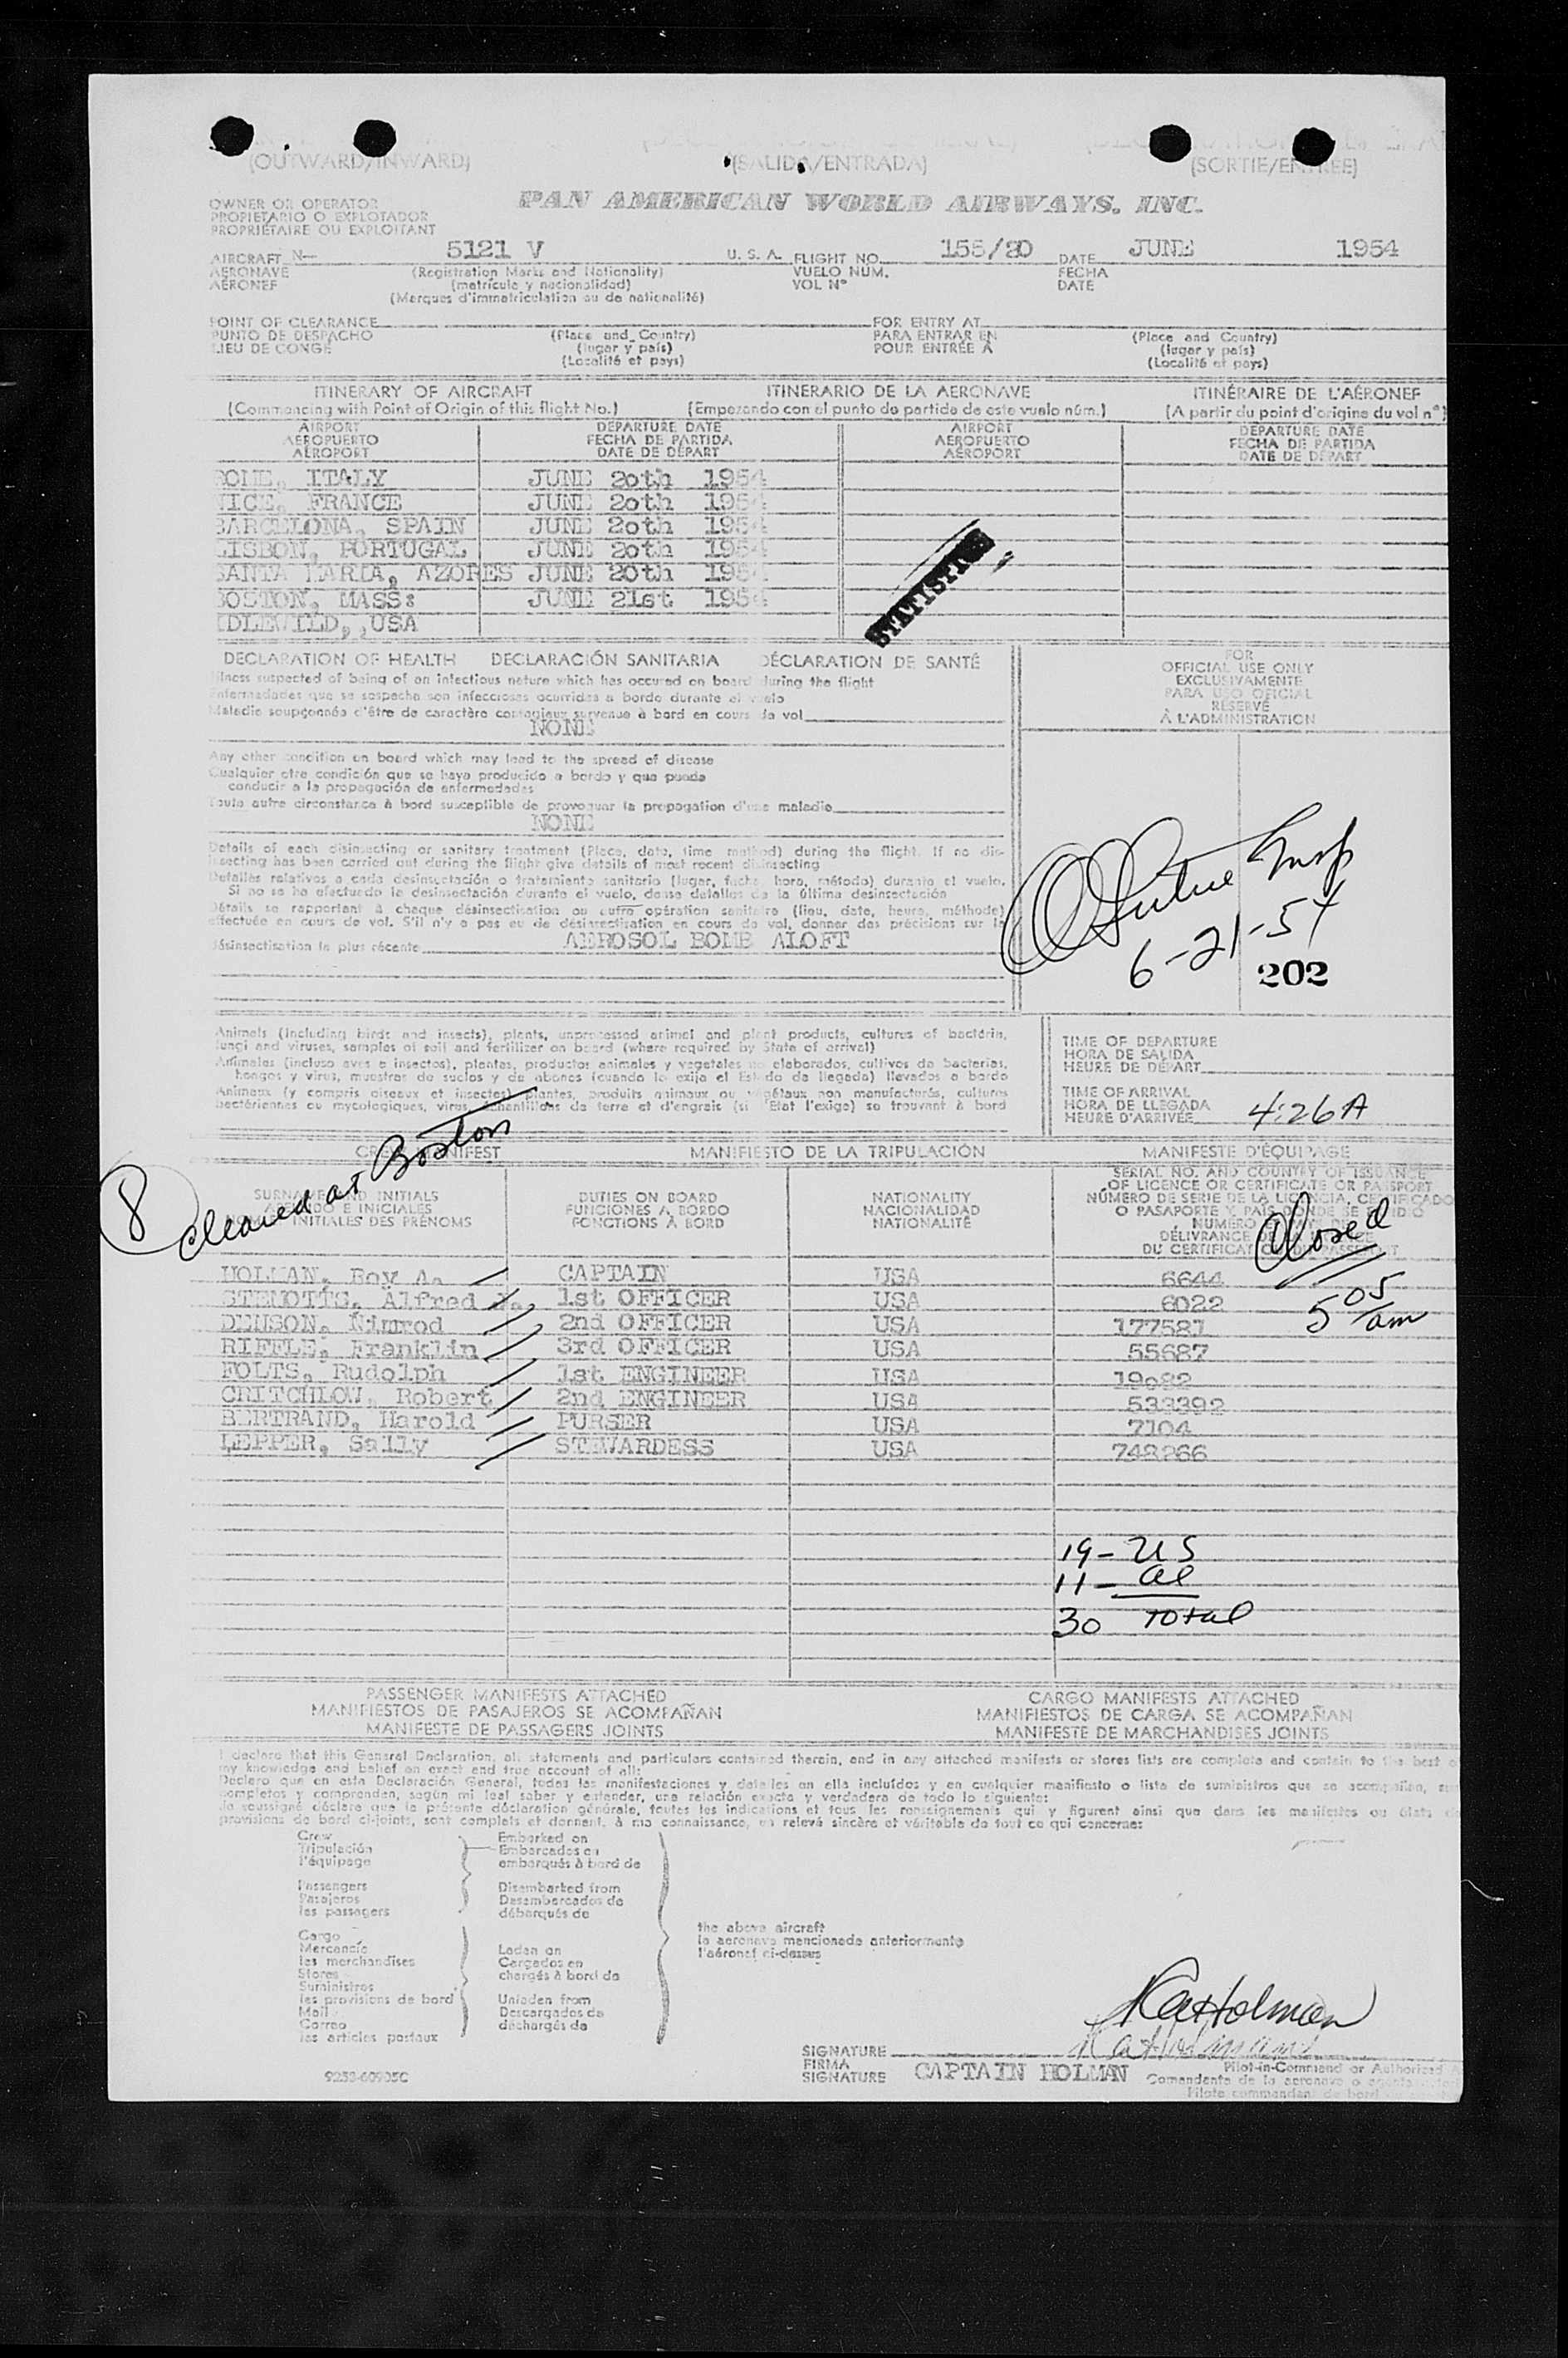 (OUTWARD/INWARD) (SALIDA/ENTRADA) (SORTIE/ENTRÉE)
OWNER OR OPERATOR
PROPIETARIO O EXPLOTADOR
PROPRIÉTAIRE OU EXPLOITANT
PAN AMERICAN WORLD AIRWAYS, INC.
AIRCRAFT N- 5121 V U. S. A. FLIGHT NO. 155/20 DATE JUNE 1954
AERONAVE (Registration Marks and Nationality) VUELO NÚM. FECHA
AÉRONEF (matrícula y nacionalidad) VOL N° DATE
(Marques d'immatriculation ou de nationalité)
POINT OF CLEARANCE FOR ENTRY AT
PUNTO DE DESPACHO (Place and Country) PARA ENTRAR EN (Place and Country)
LIEU DE CONGÉ (lugar y país) POUR ENTRÉE À (lugar y país)
(Localité et pays) (Localité et pays)
ITINERARY OF AIRCRAFT ITINERARIO DE LA AERONAVE ITINÉRAIRE DE L'AÉRONEF
(Commencing with Point of Origin of this flight No.) (Empezando con el punto de partida de este vuelo núm.) (A partir du point d'origine du vol n°)
AIRPORT DEPARTURE DATE AIRPORT DEPARTURE DATE
AEROPUERTO FECHA DE PARTIDA AEROPUERTO FECHA DE PARTIDA
AÉROPORT DATE DE DÉPART AÉROPORT DATE DE DÉPART
ROME, ITALY JUNE 20th 1954
NICE, FRANCE JUNE 20th 1954
BARCELONA, SPAIN JUNE 20th 1954
LISBON, PORTUGAL JUNE 20th 1954
SANTA MARIA, AZORES JUNE 20th 1954
BOSTON, MASS: JUNE 21st 1954
IDLEWILD, ,USA
STATISTICS
DECLARATION OF HEALTH DECLARACIÓN SANITARIA DÉCLARATION DE SANTÉ
Illness suspected of being of an infectious nature which has occured on board during the flight
Enfermedades que se sospecha son infecciosas ocurridas a bordo durante el vuelo
Maladie soupçonnée d'être de caractère contagieux survenue à bord en cours de vol
NONE
FOR
OFFICIAL USE ONLY
EXCLUSIVAMENTE
PARA USO OFICIAL
RÉSERVÉ
À L'ADMINISTRATION
Any other condition on board which may lead to the spread of disease
Cualquier otra condición que se haya producido a bordo y que pueda
conducir a la propagación de enfermedades
Toute autre circonstance à bord susceptible de provoquer la propagation d'une maladie
NONE
Details of each disinsecting or sanitary treatment (Place, date, time method) during the flight. If no dis-
insecting has been carried out during the flight give details of most recent disinsecting
Detalles relativos a cada desinsectación o tratamiento sanitario (lugar, fecha, hora, método) durante el vuelo.
Si no se ha efectuado la desinsectación durante el vuelo, dense detalles de la última desinsectación
Détails se rapportant à chaque désinsectisation ou autre opération sanitaire (lieu, date, heure, méthode)
effectuée en cours de vol. S'il n'y a pas eu de désinsectisation en cours de vol, donner des précisions sur la
désinsectisation la plus récente AEROSOL BOMB ALOFT
Insp
6-21-54
202
Animals (including birds and insects), plants, unprocessed animal and plant products, cultures of bacteria,
fungi and viruses, samples of soil and fertilizer on board (where required by State of arrival)
Animales (incluso aves e insectos), plantas, productos animales y vegetales no elaborados, cultivos de bacterias,
hongos y virus, muestras de suelos y de abonos (cuando lo exija el Estado de llegada) llevados a bordo
Animaux (y compris oiseaux et insectes) plantes, produits animaux ou végétaux non manufacturés, cultures
bactériennes ou mycologiques, virus, échantillons de terre et d'engrais (si l'État l'exige) se trouvant à bord
TIME OF DEPARTURE
HORA DE SALIDA
HEURE DE DÉPART
TIME OF ARRIVAL
HORA DE LLEGADA
HEURE D'ARRIVÉE 4:26 A
CREW MANIFEST MANIFIESTO DE LA TRIPULACIÓN MANIFESTE D'ÉQUIPAGE
8 cleared at Boston
SURNAME AND INITIALS DUTIES ON BOARD NATIONALITY
APELLIDO E INICIALES FUNCIONES A BORDO NACIONALIDAD
NOM ET INITIALES DES PRÉNOMS FONCTIONS À BORD NATIONALITÉ
SERIAL NO. AND COUNTRY OF ISSUANCE
OF LICENCE OR CERTIFICATE OR PASSPORT
NÚMERO DE SERIE DE LA LICENCIA, CERTIFICADO
O PASAPORTE Y PAÍS DONDE SE EXPIDIÓ
Closed
5 05 am
HOLMAN, Roy A. CAPTAIN USA 6644
Alfred 1st OFFICER USA 6022
DENSON, Nimrod 2nd OFFICER USA 177581
RIFFLE, Franklin 3rd OFFICER USA 55687
FOLTS, Rudolph 1st ENGINEER USA 19082
CRITCHLOW, Robert 2nd ENGINEER USA 533392
BERTRAND, Harold PURSER USA 7104
LEPPER, Sally STEWARDESS USA 748266
19- US
11- al
30 Total
PASSENGER MANIFESTS ATTACHED CARGO MANIFESTS ATTACHED
MANIFIESTOS DE PASAJEROS SE ACOMPAÑAN MANIFIESTOS DE CARGA SE ACOMPAÑAN
MANIFESTE DE PASSAGERS JOINTS MANIFESTE DE MARCHANDISES JOINTS
I declare that this General Declaration, all statements and particulars contained therein, and in any attached manifests or stores lists are complete and contain to the best of
my knowledge and belief an exact and true account of all:
Declaro que en esta Declaración General, todas las manifestaciones y detalles en ella incluídos y en cualquier manifiesto o lista de suministros que se acompañan, son
completos y comprenden, según mi leal saber y entender, una relación exacta y verdadera de todo lo siguiente:
Je soussigné déclare que la présente déclaration générale, toutes les indications et tous les renseignements qui y figurent ainsi que dans les manifestes ou états de
provisions de bord ci-joints, sont complets et donnent, à ma connaissance, un relevé sincère et véritable de tout ce qui concerne:
Crew Embarked on
Tripulación Embarcados en
l'équipage embarqués à bord de
Passengers Disembarked from
Pasajeros Desembarcados de
les passagers débarqués de
the above aircraft
la aeronave mencionada anteriormente
l'aéronef ci-dessus
Cargo
Mercancía Laden on
les marchandises Cargados en
Stores chargés à bord de
Suministros
les provisions de bord Unladen from
Mail Descargados de
Correo déchargés de
les articles postaux
RAHolman
SIGNATURE
FIRMA
SIGNATURE CAPTAIN HOLMAN
Pilot-in-Command or Authorized
Comandante de la aeronave o agente
Pilote commandant de bord
9253-60905C